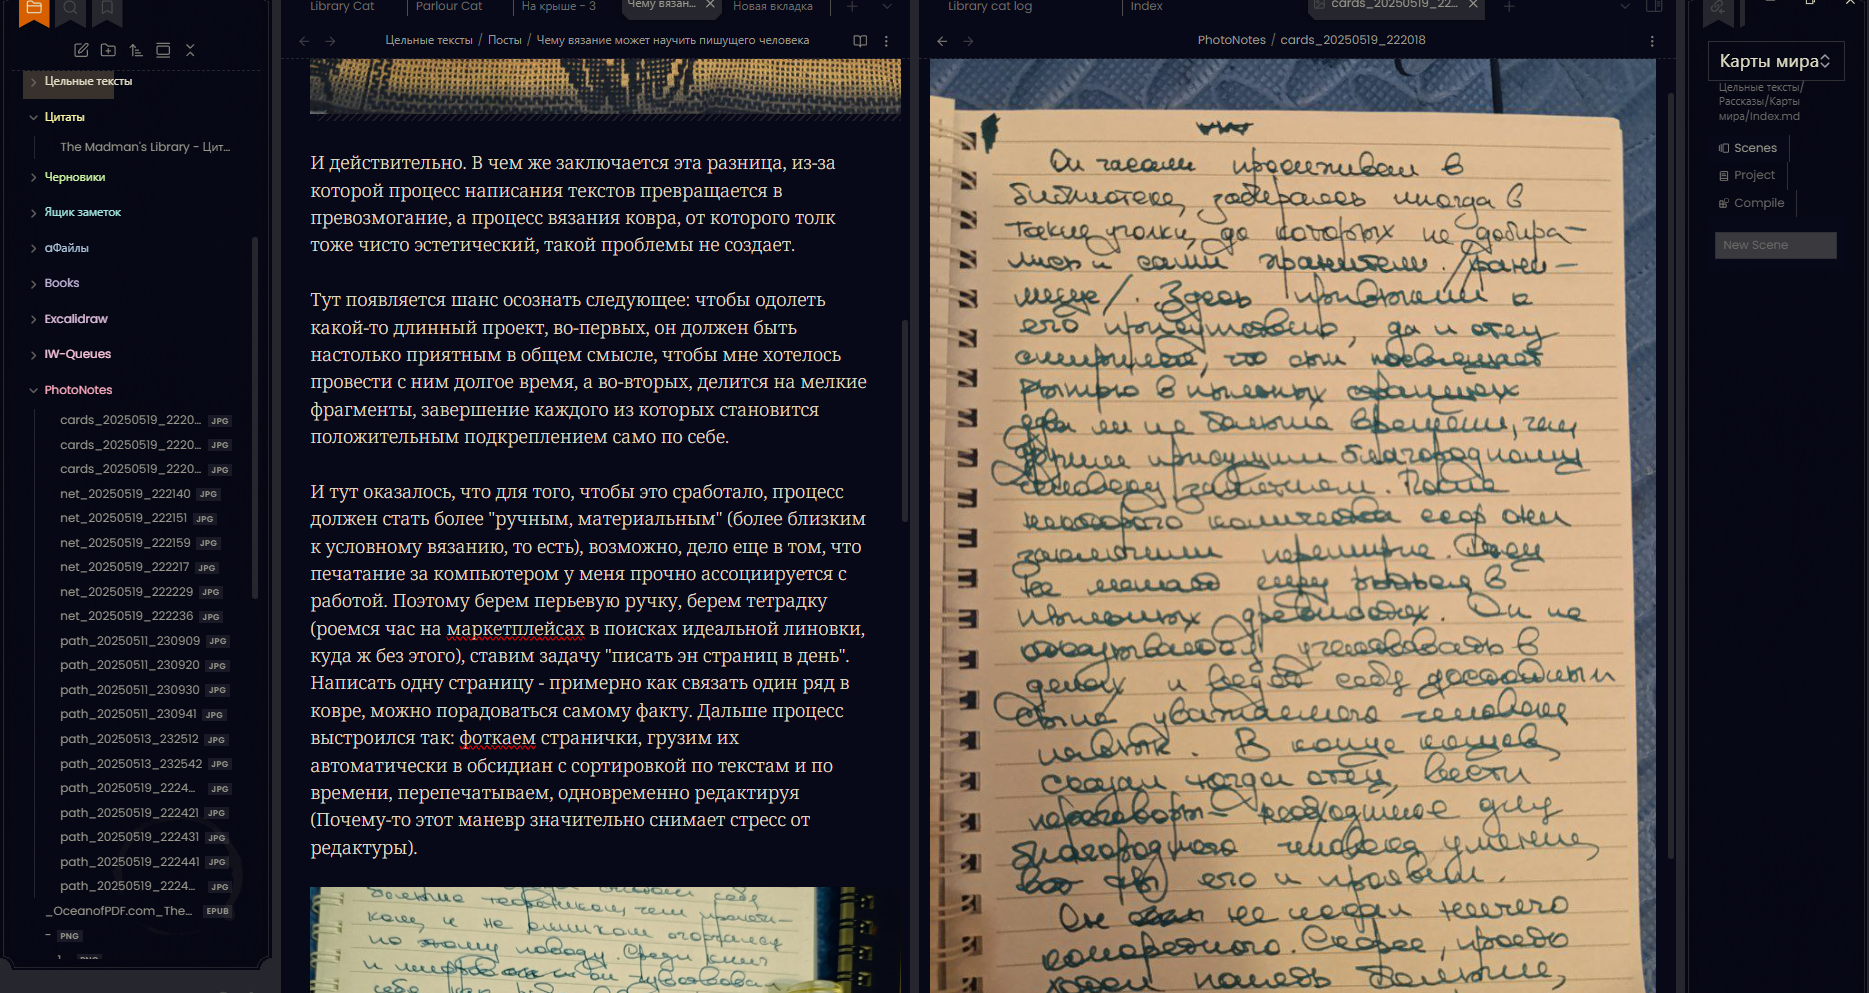 Library Cat
Parlour Cat
На крыше - 3
Чему вязан...
Новая вкладка
Library cat log
Index
cards_20250519_22...
Цельные тексты / Посты / Чему вязание может научить пишущего человека
PhotoNotes / cards_20250519_222018
Цельные тексты
Цитаты
The Madman's Library - Цит...
Черновики
Ящик заметок
αФайлы
Books
Excalidraw
IW-Queues
PhotoNotes
cards_20250519_2220... JPG
cards_20250519_2220... JPG
cards_20250519_2220... JPG
net_20250519_222140 JPG
net_20250519_222151 JPG
net_20250519_222159 JPG
net_20250519_222217 JPG
net_20250519_222229 JPG
net_20250519_222236 JPG
path_20250511_230909 JPG
path_20250511_230920 JPG
path_20250511_230930 JPG
path_20250511_230941 JPG
path_20250513_232512 JPG
path_20250513_232542 JPG
path_20250519_2224... JPG
path_20250519_222421 JPG
path_20250519_222431 JPG
path_20250519_222441 JPG
path_20250519_2224... JPG
_OceanofPDF.com_The... EPUB
- PNG
И действительно. В чем же заключается эта разница, из-за
которой процесс написания текстов превращается в
превозмогание, а процесс вязания ковра, от которого толк
тоже чисто эстетический, такой проблемы не создает.
Тут появляется шанс осознать следующее: чтобы одолеть
какой-то длинный проект, во-первых, он должен быть
настолько приятным в общем смысле, чтобы мне хотелось
провести с ним долгое время, а во-вторых, делится на мелкие
фрагменты, завершение каждого из которых становится
положительным подкреплением само по себе.
И тут оказалось, что для того, чтобы это сработало, процесс
должен стать более "ручным, материальным" (более близким
к условному вязанию, то есть), возможно, дело еще в том, что
печатание за компьютером у меня прочно ассоциируется с
работой. Поэтому берем перьевую ручку, берем тетрадку
(роемся час на маркетплейсах в поисках идеальной линовки,
куда ж без этого), ставим задачу "писать эн страниц в день".
Написать одну страницу - примерно как связать один ряд в
ковре, можно порадоваться самому факту. Дальше процесс
выстроился так: фоткаем странички, грузим их
автоматически в обсидиан с сортировкой по текстам и по
времени, перепечатываем, одновременно редактируя
(Почему-то этот маневр значительно снимает стресс от
редактуры).
по этому поводу. Среди книг
Он часами просиживал в
библиотеке, забираясь иногда в
такие уголки, до которых не добира-
лись и сами хранители.
Здесь привыкли к
его присутствию, да и отец
смирился, что сын посвящает
рытью в пыльных страницах
едва ли не больше времени, чем
другим присущим благородному
человеку занятиям. После
некоторого количества ссор они
заключили перемирие. Отец
не мешает сыну рыться в
пыльных древностях. Он не
отказывается участвовать в
делах и ведет себя достойным
сына уважаемого человека
В конце концов,
сказал когда отец, вести
переговоры - необходимое для
благородного человека умение,
его и прояви.
Он не искал ничего
конкретного. Скорее,
Карты мира
Цельные тексты/
Рассказы/Карты
мира/Index.md
Scenes
Project
Compile
New Scene